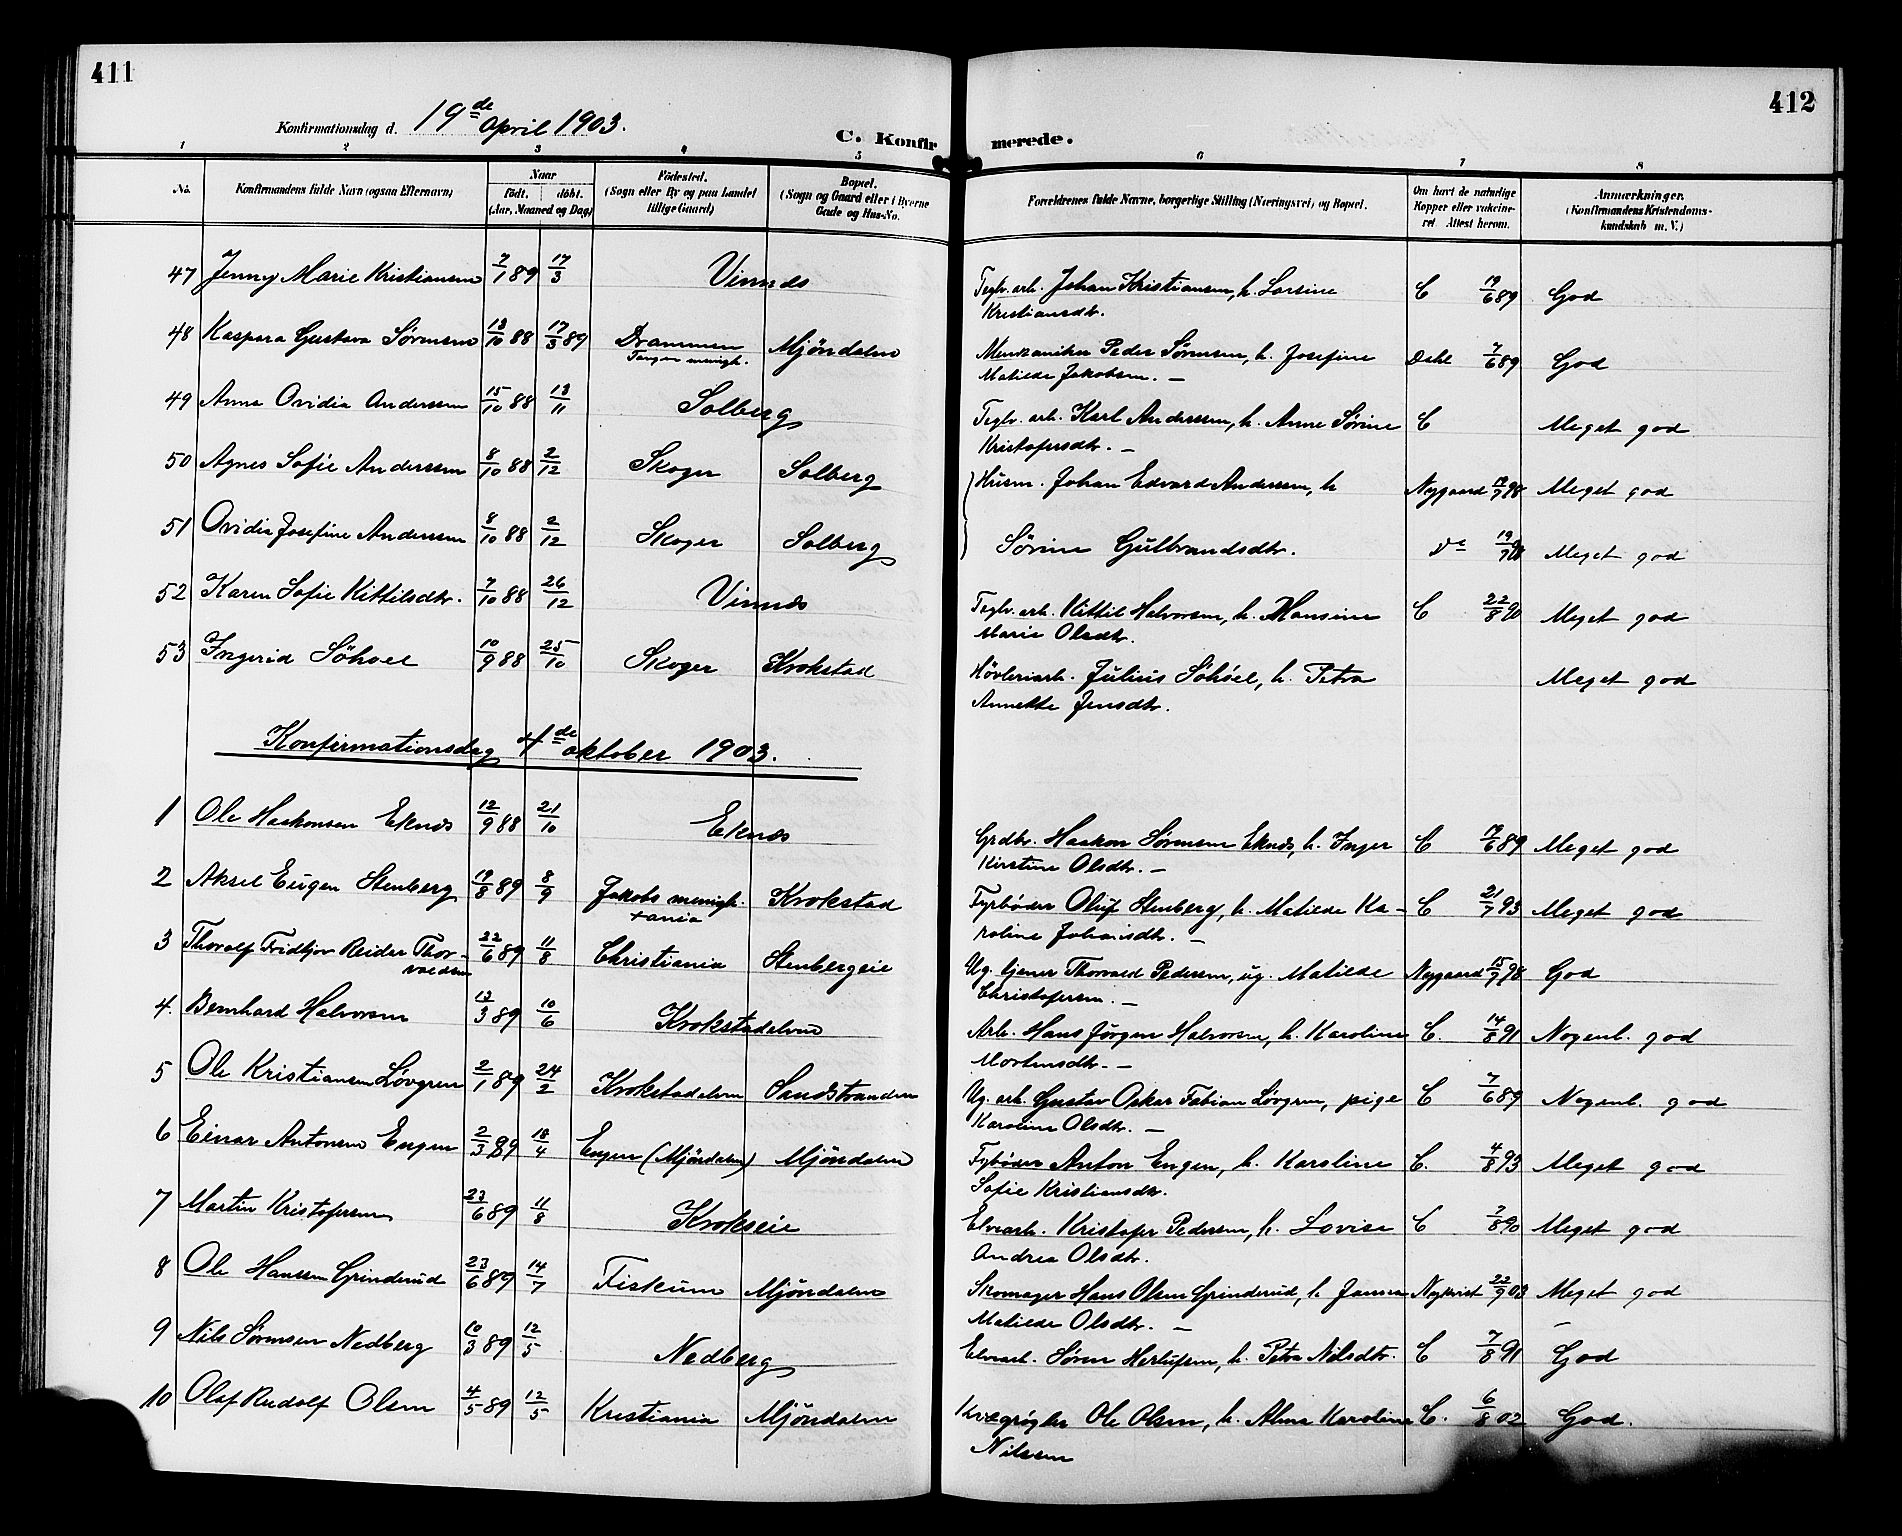 411
412
Konfirmationsdag d. 19de April 1903.
C. Konfirmerede.
1 2 3 4 5 6 7 8
No.
Konfirmandens fulde Navn (ogsaa Efternavn)
Naar
født. døbt.
(Aar, Maaned og Dag)
Födested.
(Sogn eller By og paa Landet
tillige Gaard)
Bopæl.
(Sogn og Gaard eller i Byerne
Gade og Hus-No.
Forældrenes fulde Navne, borgerlige Stilling (Næringsvei) og Bopæl.
Om havt de naturlige
Kopper eller vakcine-
ret Attest herom.
Anmærkninger.
(Konfirmandens Kristendoms-
kundskab m. V.)
47 Jenny Marie Kristiansen 7/1 89 17/3 Vinnæs Teglv. arb. Johan Kristiansen, h. Lorsine C 19/6 89 God
Kristiansdtr.
48 Kaspara Gustava Sørensen 13/10 88 17/3 89 Drammen Mjöndalen Mendkaniker Peder Sørensen, h. Josefine Dahl 7/6 89 God
Tangen menigh. Matilde Jakobsen. —
49 Anna Ovidia Anderssen 15/10 88 18/11 Solberg Teglv. arb. Karl Anderssen, h. Anne Sørine C Meget god
Kristofersdtr. —
50 Agnes Sofie Anderssen 8/10 88 2/12 Skoger Solberg Husm. Johan Edvard Anderssen, h Nygaard 19/9 98 Meget god
51 Ovidia Josefine Anderssen 8/10 88 2/12 Skoger Solberg Sørine Gulbrandsdtr. do 19/9 98 Meget god
52 Karen Sofie Kittilsdtr. 7/10 88 26/12 Vinnæs Teglv. arb. Kittil Halvorsen, h. Hansine C 22/8 90 Meget god
Marie Olsdtr.
53 Ingerid Söhoel 10/9 88 25/10 Skoger Krokstad Hövleriarb. Julius Söhöel, h. Petra Meget god
Annette Jensdtr.
Konfirmationsdag 4de oktober 1903.
1 Ole Haakonsen Eknæs 12/9 88 21/10 Eknæs Grdbr. Haakon Sørensen Eknæs, h. Inger C 7/6 89 Meget god
Kirstine Olsdtr. —
2 Aksel Eugen Stenberg 19/8 89 8/9 Jakobs menigh. Krokstad Fyrbøder Oluf Stenberg, h. Matilde Ka- C 21/7 93 Meget god
tania roline Johansdtr. —
3 Thorolf Fridtjov Reidar Thor- 22/6 89 11/8 Christiania Stenbergeie Ug. tjener Thorvald Pedersen, ug. Matilde Nygaard 15/9 98 God
valdsen Christofersen. —
4. Bernhard Halvorsen 13/3 89 10/6 Krokstadelven Arb. Hans Jørgen Halvorsen, h. Karoline C. 14/8 91 Nogenl. god
Mortensdtr. —
5 Ole Kristiansen Løvgren 2/1 89 24/2 Krokstadelven Sandstranden Ug. arb. Gustav Oskar Fabian Løvgren, pige C 7/6 89 Nogenl. god
Karoline Olsdtr. —
6 Einar Antonsen Engen 2/3 89 18/4 Engen (Mjöndalen) Mjöndalen Fyrbøder Anton Engen, h. Karoline C. 4/8 93 Meget god
Sofie Kristiansdtr.
7 Martin Kristofersen 23/6 89 11/8 Krokseie Elvearb. Kristofer Pedersen, h. Lovise C 7/8 90 Meget god
Andrea Olsdtr.
8 Ole Hanssen Grinderud 23/6 89 14/7 Fiskum Mjöndalen Skomager Hans Olsen Grinderud, h. Jansea Nykvist 22/9 03 Meget god
Matilde Olsdtr. —
9 Nils Sørensen Nedberg 10/3 89 12/5 Nedberg Elvearb. Søren Herlufsen, h. Petra Nilsdtr. C 7/8 91 God
10 Olaf Rudolf Olsen 4/5 89 12/5 Kristiania Mjöndalen Kvægrøgter Ole Olsen, h. Alma Karoline C. 6/8 02 God.
Nilssen